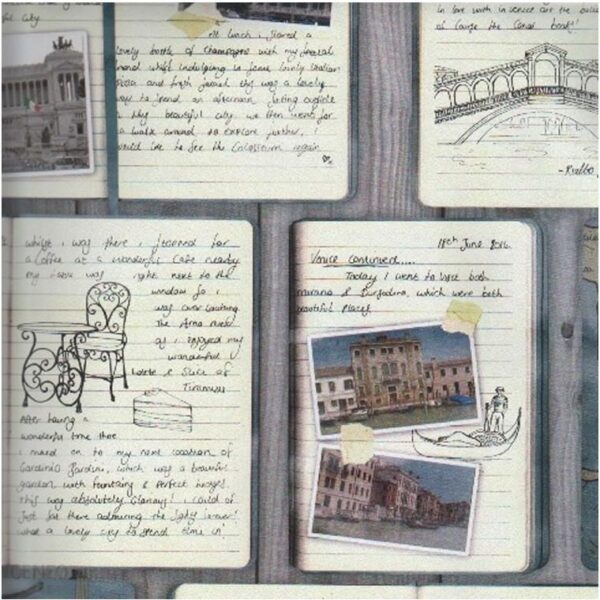 ful city
ft lunch i shared a
lovely bottle of champagne with my friend
and whilst indulging in some lovely Italian
pizza and fresh
this was a lovely
way to spend an afternoon, sitting outside
in this beautiful city. we then went for
a walk around to explore further. I
would love to see the Colosseum again
in love with in venice are the
of course the Canal boats!
- Rialto
whilst i was there i stopped for
a Coffee at a wonderful Cafe nearby
my table was right next to the
window so i
was over looking
the Arno river
as i enjoyed my
wonderful
Latte & Slice of
Tiramisu
After having a
wonderful time there
i moved on to my next location of
Giardino Bardini, which was a beautiful
garden with fountains &
this was absolutely
i could of
Just Sat there admiring the
what a lovely city to spend time in
18th June 2016
Venice continued....
Today I went to visit both
murano &
which were both
beautiful places